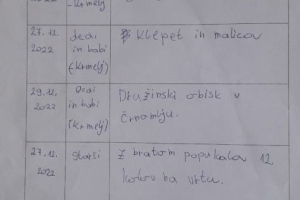 - Krmelj)
27.12.
2022
Dedi
in babi
(-Krmelj)
Klepet in malica
29.12.
2022
Dedi
in babi
(Krmelj)
Družinski obisk v
Črnomlju.
27.12.
2022
starši
Z bratom popukala 12
kolov na vrtu.